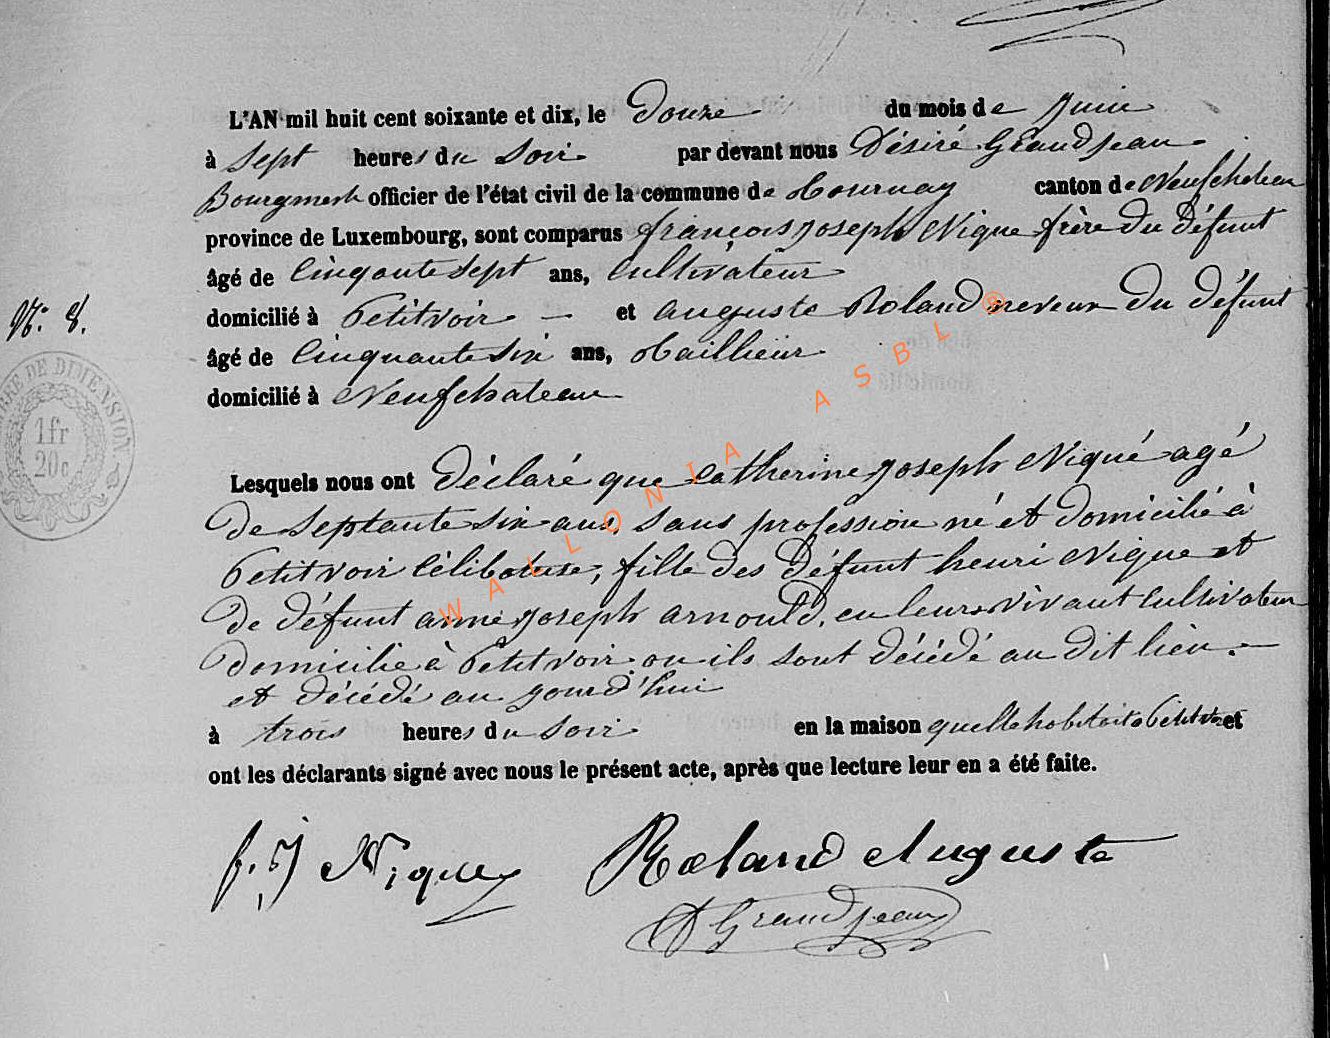 L'AN mil huit cent soixante et dix, le douze du mois de juin
à sept heures du soir par devant nous Désiré Grandjean
Bourgmestr officier de l'état civil de la commune de Tournay canton de Neufchateau
province de Luxembourg, sont comparus françois joseph Nique frère du défunt
âgé de Cinqante sept ans, Cultivateur
domicilié à Petitvoir — et auguste Roland neveux du défunt
âgé de Cinquante six ans, tailleur
N.° 8.
domicilié à Neufchateau
TIMBRE DE DIMENSION
1fr
20c
Lesquels nous ont déclaré que Catherine joseph Niqué agé
de septante six ans, sans profession né et domicilié à
Petitvoir Célibataire, fille des défunt henri Nique et
de défunt anne joseph arnould, en leurs vivant Cultivateur
domicilié à Petitvoir ou ils sont décédé au dit lieu.—
et décédé au jourd'hui
à trois heures du soir en la maison quelle habitait a Petitvoir et
ont les déclarants signé avec nous le présent acte, après que lecture leur en a été faite.
f. J Nique Roland Auguste
D Grandjean
WALLONIA ASBL ®